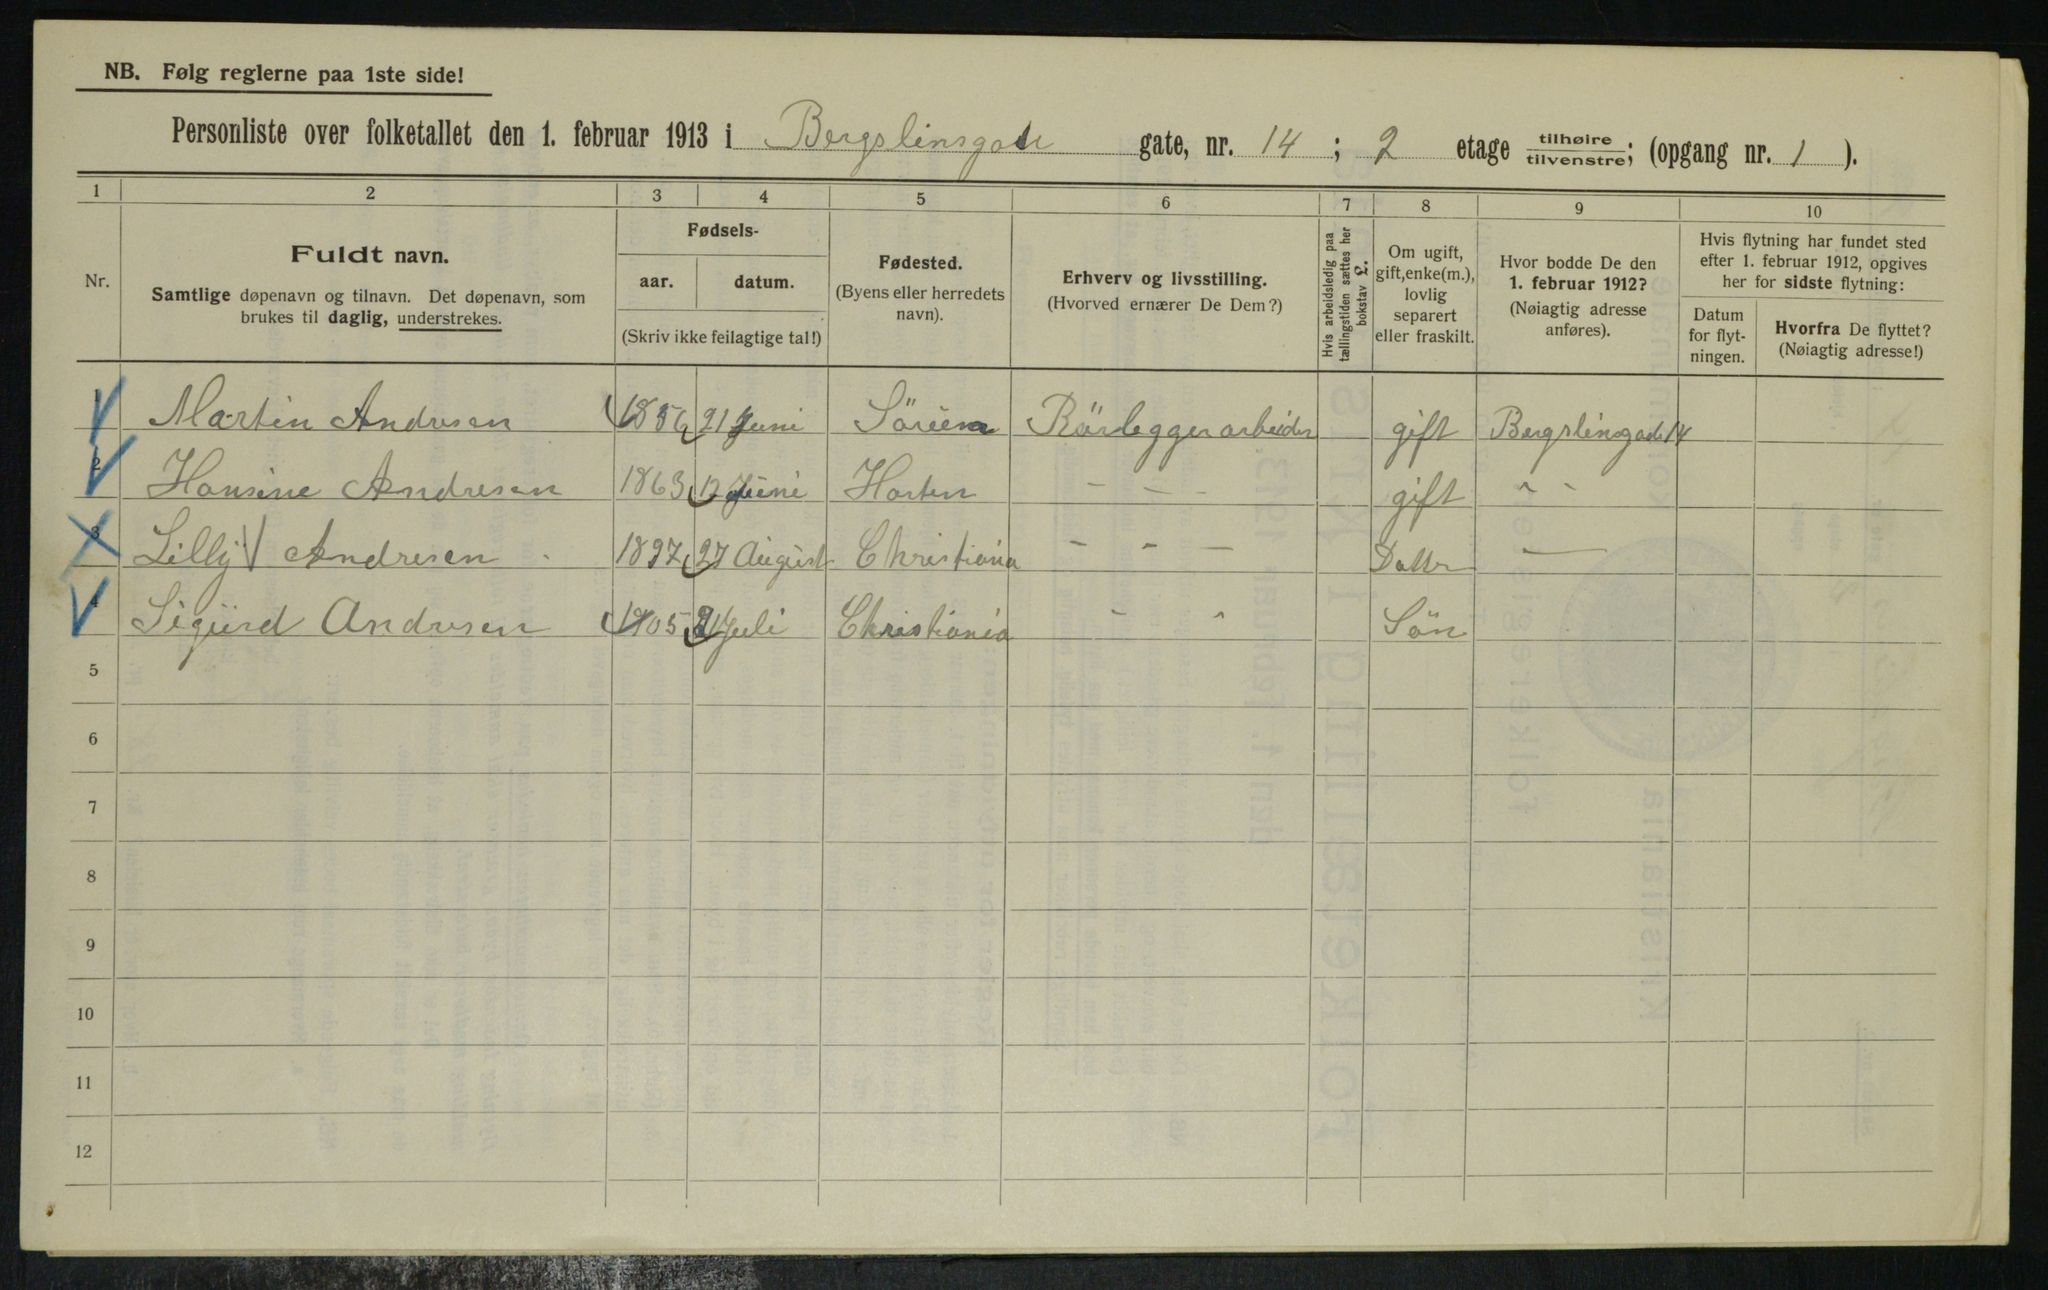 NB. Følg reglerne paa 1ste side!
Personliste over folketallet den 1. februar 1913 i Bergslinsgade gate, nr. 14 ; 2 etage tilhøire/tilvenstre; (opgang nr. 1 ).
1 2 3 4 5 6 7 8 9 10
Nr.
Fuldt navn.
Samtlige døpenavn og tilnavn. Det døpenavn, som
brukes til daglig, understrekes.
Fødsels-
aar. datum.
(Skriv ikke feilagtige tal!)
Fødested.
(Byens eller herredets
navn).
Erhverv og livsstilling.
(Hvorved ernærer De Dem?)
Hvis arbeidsledig paa
tællingstiden sættes her
bokstav L.
Om ugift,
gift, enke(m.),
lovlig
separert
eller fraskilt.
Hvor bodde De den
1. februar 1912?
(Nøiagtig adresse
anføres).
Hvis flytning har fundet sted
efter 1. februar 1912, opgives
her for sidste flytning:
Datum
for flyt-
ningen.
Hvorfra De flyttet?
(Nøiagtig adresse!)
1 Martin Andresen 1856 21 Juni Rörleggerarbeider gift Bergslinsgade 14
2 Hansine Andresen 1863 12 Juni Horten - - - gift " -
3 Lilly Andresen 1897 27 August Christiania - - - Datter —
4 Sigurd Andresen 1905 21 Juli Christiania - " Sön
5
6
7
8
9
10
11
12